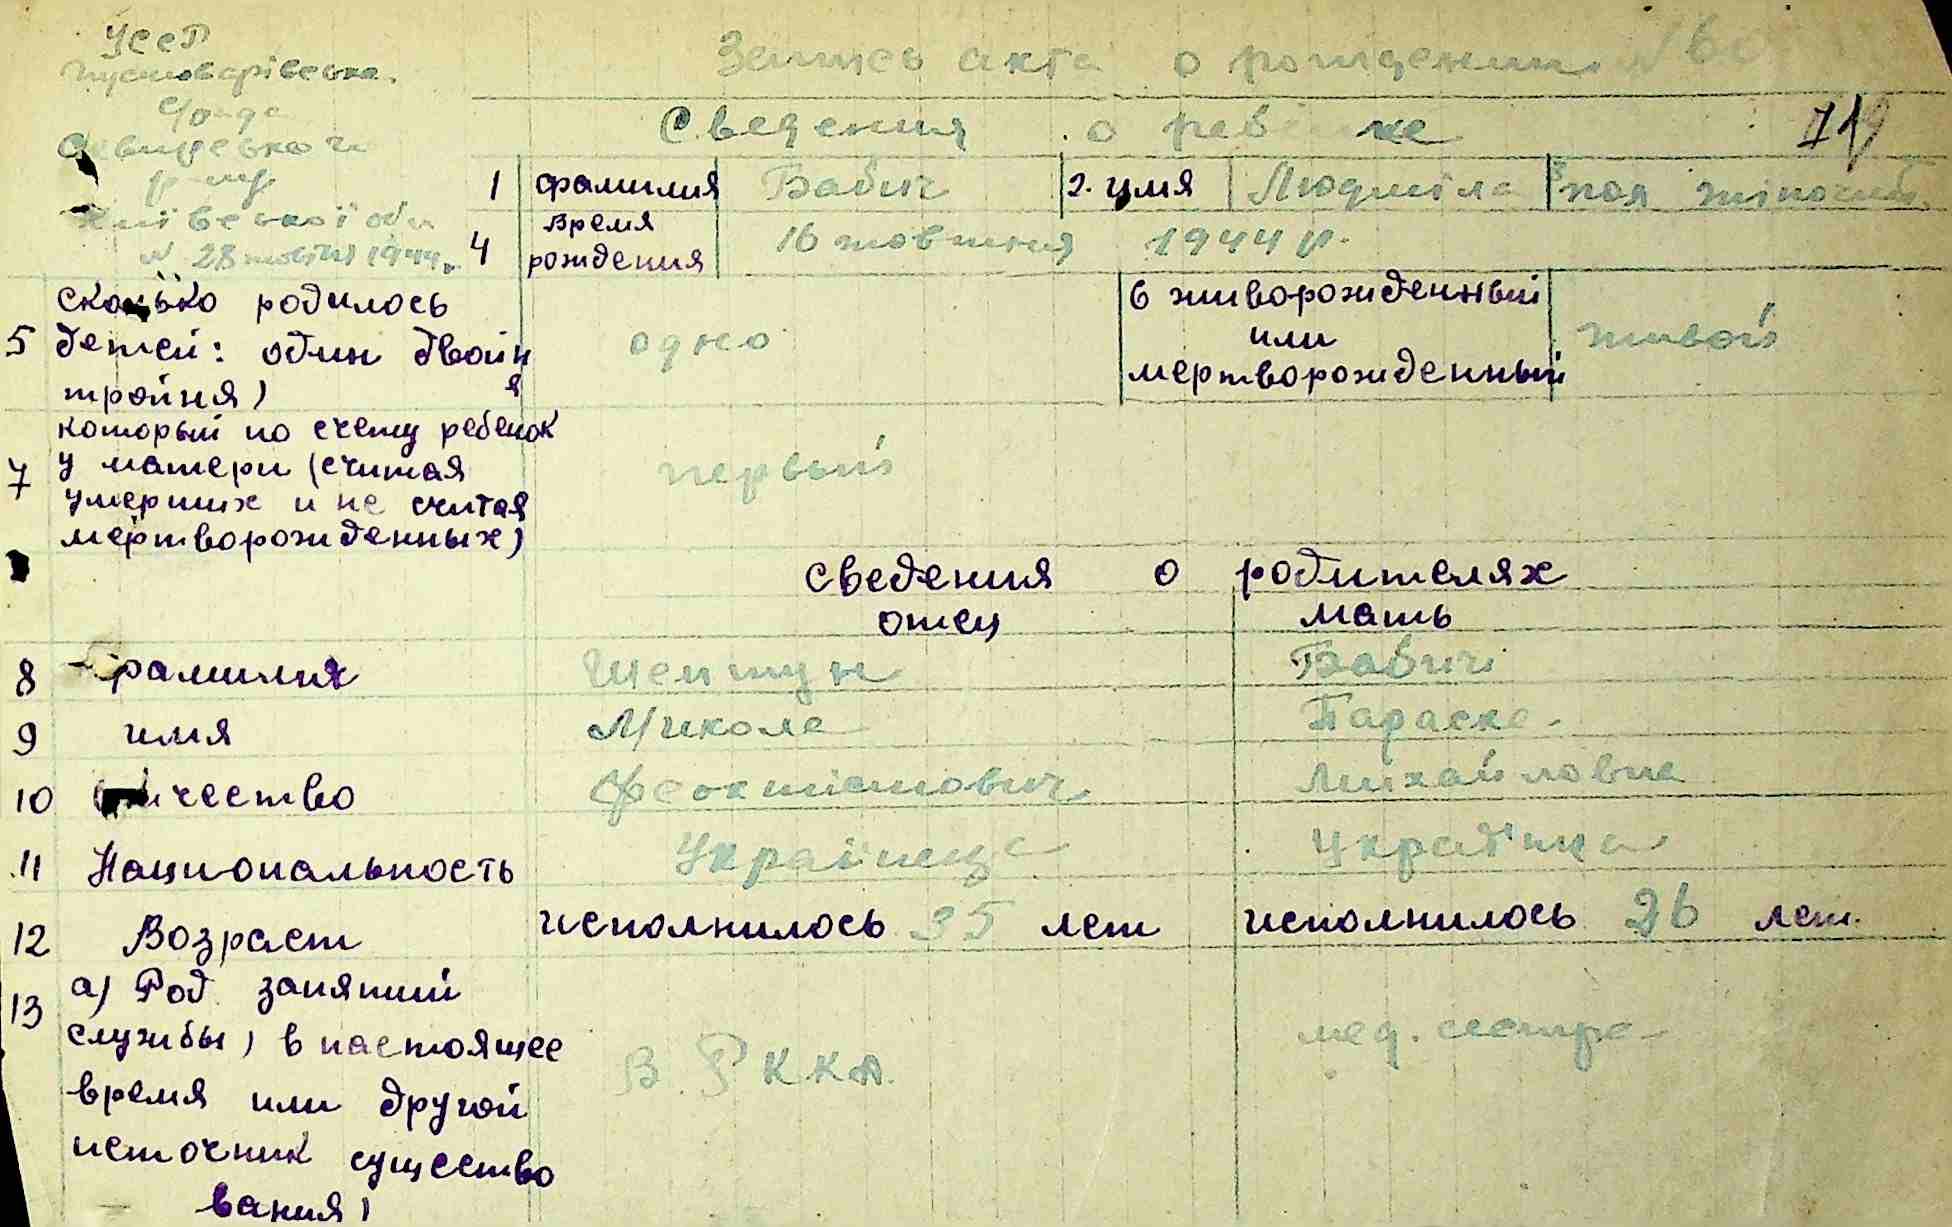 УССР
Пустоварівська
Сквирського
р-ну
Київської обл
№ 28 жовтня 1944р.
Запись акта о рождении № 60
Сведения о ребёнке
1 фамилия Бабич 2. имя Людміла 3 пол жіночий
4 время рождения 16 жовтня 1944 р.
5 сколько родилось
детей: один двойн
я
тройня) одно
6 живорожденный
или
мертворожденный живой
7 который по счету ребенок
у матери (считая
умерших и не считая
мертворожденных) первый
сведения о родителях
отец мать
8 фамилия Шептун Бабич
9 имя Микола Параска
10 отчество Феоктістович Михайловна
11 Национальность Українець Українка
12 Возраст исполнилось 35 лет исполнилось 26 лет.
13 а) Род занятий
службы) в настоящее
время или другой
источник существо
вания) В РККА. мед. сестра